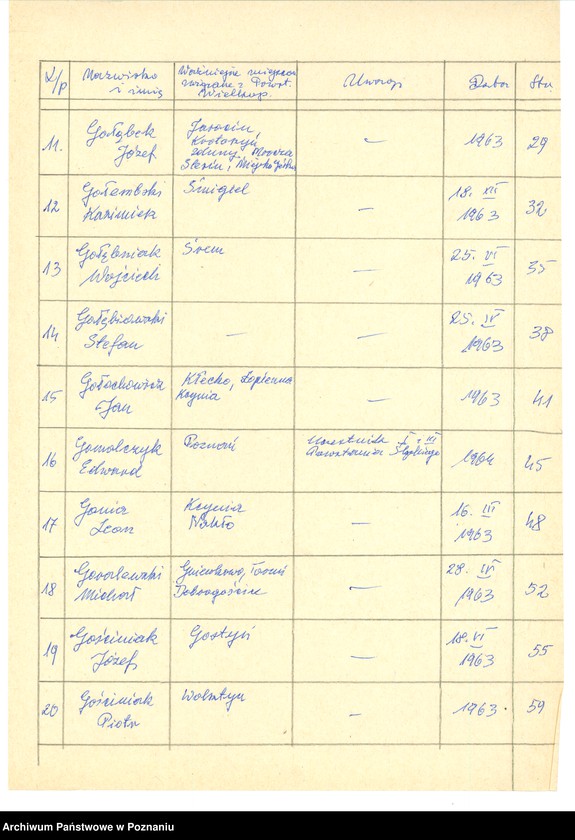 L/p Nazwisko i imię Ważniejsze miejsca związane z Powst. Wielkop. Uwagi Data Str
11. Gołąbek Józef Jarocin, Krotoszyn, Zduny, Mrocza Ślesin, Miejska Górka - 1963 29
12 Gołembski Kazimierz Śmigiel - 18. XII 1963 32
13 Gołębniak Wojciech Śrem - 25. VI 1963 35
14 Gołębiowski Stefan - - 25. IV 1963 38
15 Gołochowicz Jan Kłecko, Łopienno Kcynia - 1963 41
16 Gomolczyk Edward Poznań Uczestnik I i III Powstania Śląskiego 1964 45
17 Gonia Leon Kcynia Nakło - 16. III 1963 48
18 Michał Gniewkowo, Toruń - 28. IV 1963 52
19 Gościniak Józef Gostyń - 18. VI 1963 55
20 Gościniak Piotr Wolsztyn - 1963. 59
Archiwum Państwowe w Poznaniu